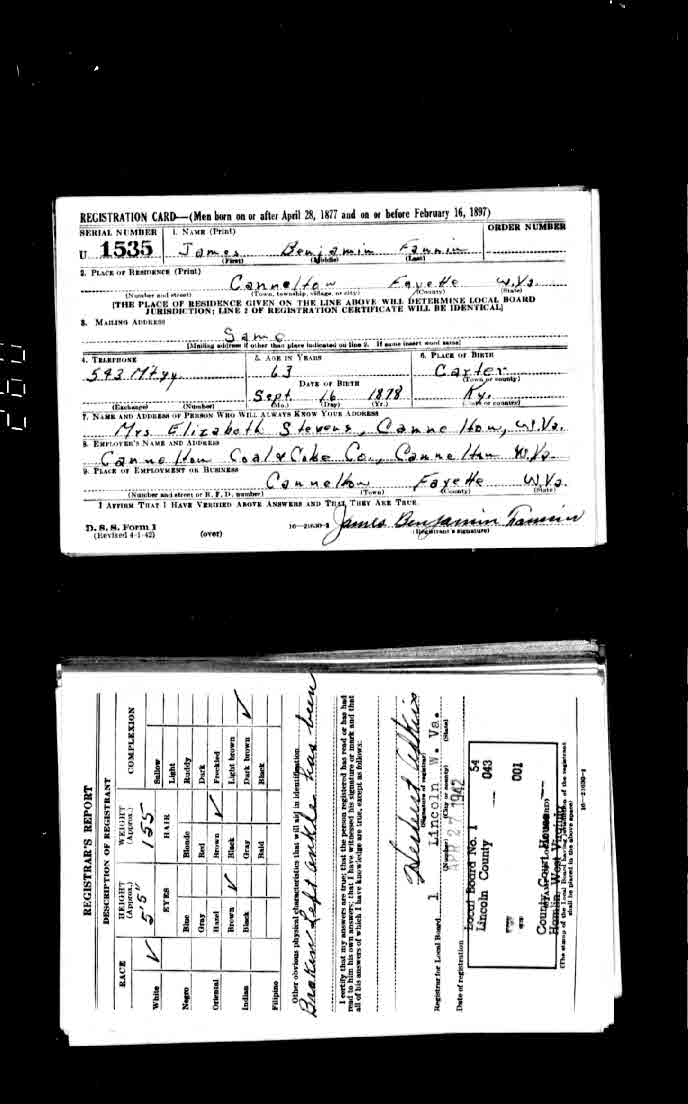 REGISTRATION CARD—(Men born on or after April 28, 1877 and on or before February 16, 1897)
SERIAL NUMBER 1. NAME (Print) ORDER NUMBER
U 1535 James Benjamin Fannin
(First) (Middle) (Last)
2. PLACE OF RESIDENCE (Print)
Cannelton Fayette W.Va.
(Number and street) (Town, township, village, or city) (County) (State)
[THE PLACE OF RESIDENCE GIVEN ON THE LINE ABOVE WILL DETERMINE LOCAL BOARD
JURISDICTION; LINE 2 OF REGISTRATION CERTIFICATE WILL BE IDENTICAL]
3. MAILING ADDRESS
Same
[Mailing address if other than place indicated on line 2. If same insert word same]
4. TELEPHONE 5. AGE IN YEARS 6. PLACE OF BIRTH
63 Carter
(Town or county)
DATE OF BIRTH
Sept. 16 1878 Ky.
(Exchange) (Number) (Mo.) (Day) (Yr.) (State or country)
7. NAME AND ADDRESS OF PERSON WHO WILL ALWAYS KNOW YOUR ADDRESS
Mrs. Elizabeth Stevens, Cannelton, W.Va.
8. EMPLOYER'S NAME AND ADDRESS
Cannelton Coal & Coke Co., Cannelton W.Va.
9. PLACE OF EMPLOYMENT OR BUSINESS
Cannelton Fayette W.Va.
(Number and street or R. F. D. number) (Town) (County) (State)
I AFFIRM THAT I HAVE VERIFIED ABOVE ANSWERS AND THAT THEY ARE TRUE.
James Benjamin Fannin
D. S. S. Form 1 16—21630-2 (Registrant's signature)
(Revised 4-1-42) (over)
REGISTRAR'S REPORT
DESCRIPTION OF REGISTRANT
RACE HEIGHT (Approx.) WEIGHT (Approx.) COMPLEXION
5'5" 155
White ✓ EYES HAIR Sallow
Light
Negro Blue Blonde Ruddy
Gray Red Dark
Oriental Hazel Brown ✓ Freckled
Brown ✓ Black Light brown
Indian Black Gray Dark brown ✓
Bald Black
Filipino
Other obvious physical characteristics that will aid in identification
Broken Left ankle has been
I certify that my answers are true; that the person registered has read or has had
read to him his own answers; that I have witnessed his signature or mark and that
all of his answers of which I have knowledge are true, except as follows:
Adkins
(Signature of registrar)
Registrar for Local Board 1 Lincoln W. Va.
(Number) (City or county) (State)
Date of registration APR 27 1942
Local Board No. 1 54
Lincoln County 043
001
County Court House
Hamlin, West Virginia
(The stamp of the Local Board having jurisdiction of the registrant
shall be placed in the above space)
16—21630-1